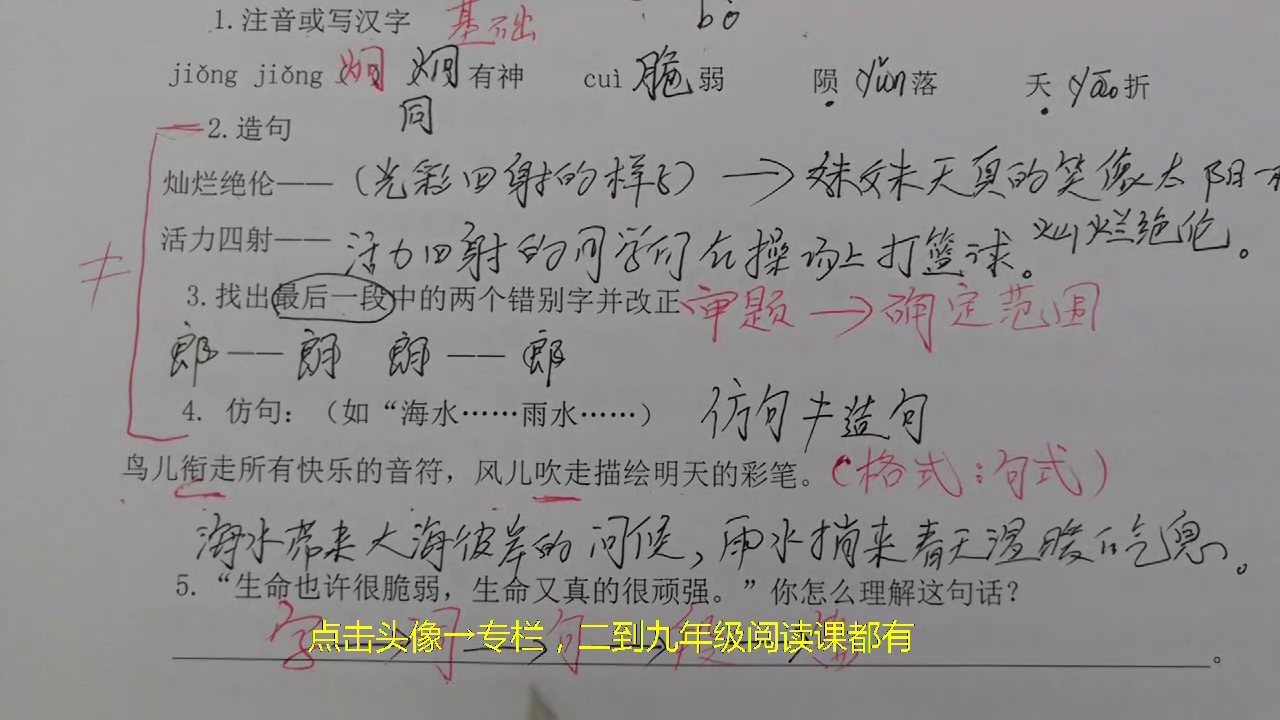 1.注音或写汉字 基础 bó
jiǒng jiǒng 炯 炯有神 cuì 脆弱 陨 yǔn落 夭 yāo折
同
2.造句
灿烂绝伦——（光彩四射的样子）→妹妹天真的笑像太阳一
灿烂绝伦。
活力四射——活力四射的同学们在操场上打篮球。
≠
3.找出最后一段中的两个错别字并改正 审题→确定范围
郎——朗 朗——郎
4. 仿句：（如“海水……雨水……） 仿句≠造句
鸟儿衔走所有快乐的音符，风儿吹走描绘明天的彩笔。（格式：句式）
海水带来大海彼岸的问候，雨水捎来春天温暖的气息。
5.“生命也许很脆弱，生命又真的很顽强。”你怎么理解这句话？
字→词→句→段→
点击头像→专栏，二到九年级阅读课都有